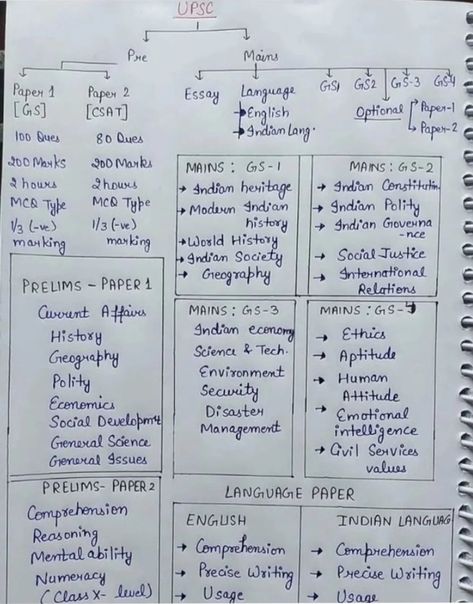 UPSC
Pre
Mains
Paper 1
[GS]
100 Ques
200 Marks
2 hours
MCQ Type
1/3 (-ve)
marking
Paper 2
[CSAT]
80 Ques
200 Marks
2 hours
MCQ Type
1/3 (-ve)
marking
Essay
Language
→ English
→ Indian Lang.
GS1
GS2
Optional
Paper-1
Paper-2
GS-3
GS-4
MAINS : GS-1
→ Indian heritage
→ Modern Indian
history
→ World History
→ Indian Society
→ Geography
MAINS : GS-2
→ Indian Constitution
→ Indian Polity
→ Indian Governa
-nce
→ Social Justice
→ International
Relations
PRELIMS - PAPER 1
Current Affairs
History
Geography
Polity
Economics
Social Developmt
General Science
General Issues
MAINS : GS-3
Indian economy
Science & Tech.
Environment
Security
Disaster
Management
MAINS : GS-4
→ Ethics
→ Aptitude
→ Human
Attitude
→ Emotional
intelligence
→ Civil Services
values
PRELIMS- PAPER 2
Comprehension
Reasoning
Mental ability
Numeracy
(Class X- level)
LANGUAGE PAPER
ENGLISH
→ Comprehension
→ Precise Writing
→ Usage
INDIAN LANGUAG
→ Comprehension
→ Precise Writing
→ Usage